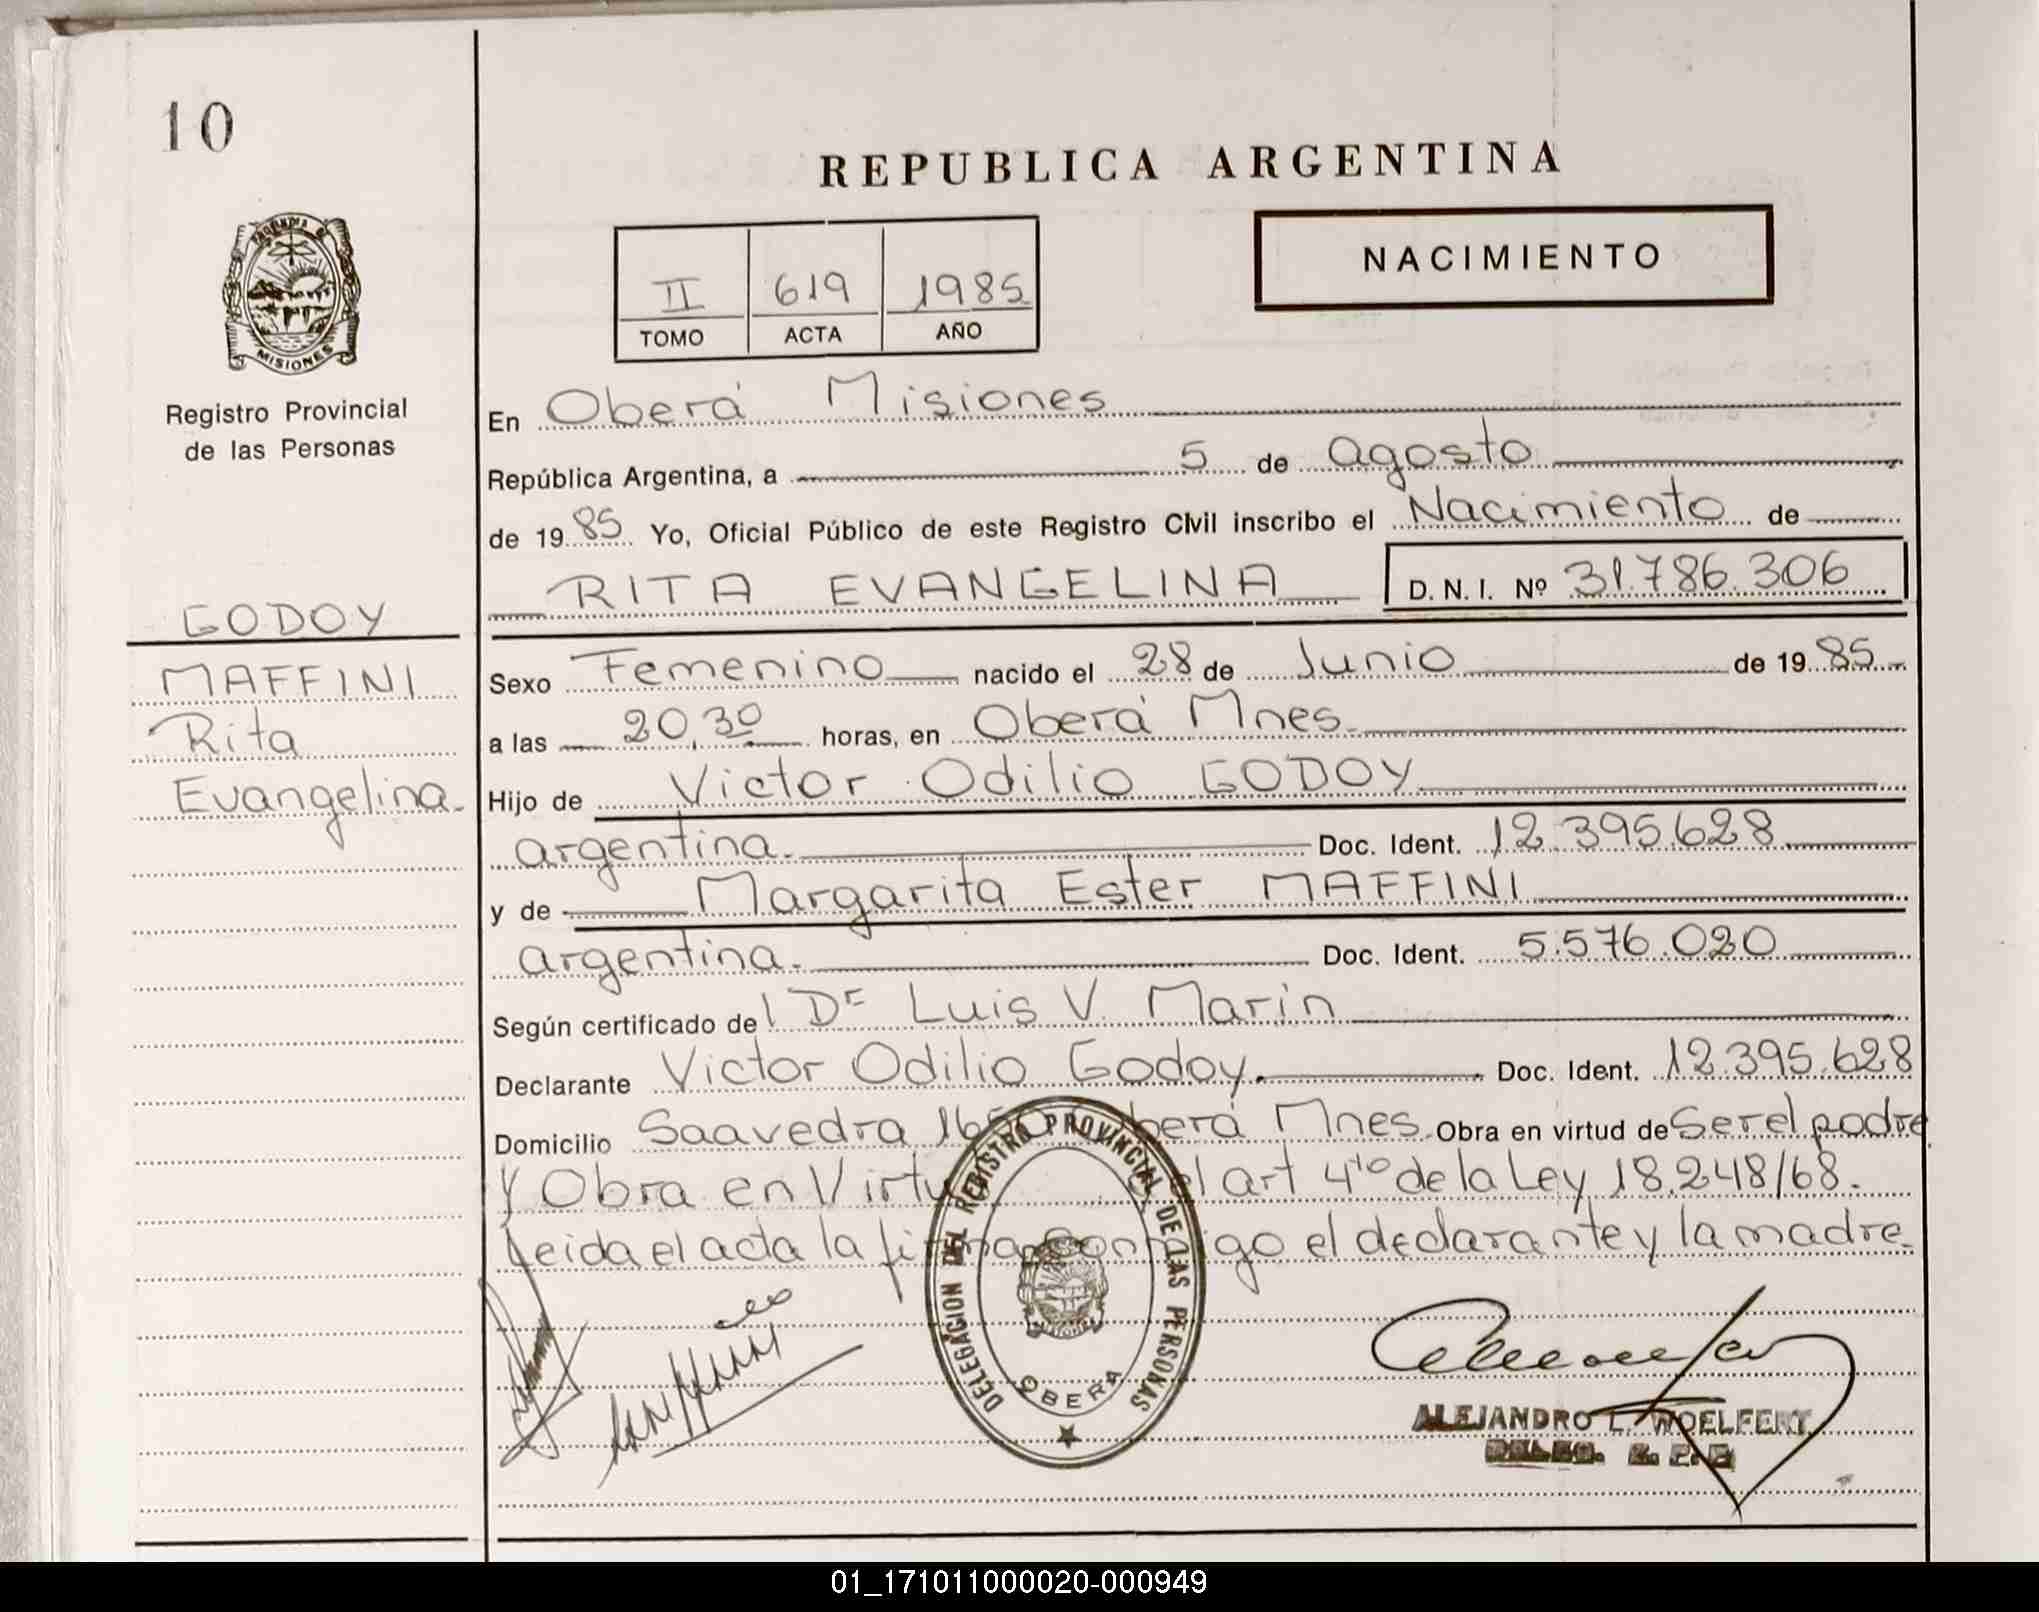 10
REPUBLICA ARGENTINA
NACIMIENTO
II 619 1985
TOMO ACTA AÑO
MISIONES
Registro Provincial
de las Personas
GODOY
MAFFINI
Rita
Evangelina.
En Oberá Misiones
República Argentina, a 5 de agosto
de 1985 Yo, Oficial Público de este Registro Civil inscribo el Nacimiento de
RITA EVANGELINA D. N. I. Nº 31.786.306
Sexo Femenino nacido el 28 de Junio de 1985
a las 20,30 horas, en Oberá Mnes.
Hijo de Victor Odilio GODOY
argentina. Doc. Ident. 12.395.628
y de Margarita Ester MAFFINI
argentina. Doc. Ident. 5.576.020
Según certificado del Dr Luis V. Marin
Declarante Victor Odilio Godoy. Doc. Ident. 12.395.628
Domicilio Saavedra Oberá Mnes. Obra en virtud de Ser el padre
y Obra en Virtud del art 4to de la Ley 18.248/68.
Leida el acta la firman conmigo el declarante y la madre.
DELEGACION DEL REGISTRO PROVINCIAL DE LAS PERSONAS
OBERA
ALEJANDRO L. WOELFERT
01_171011000020-000949